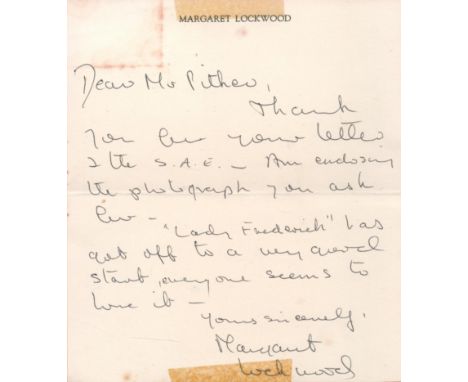 MARGARET LOCKWOOD
Dear Mr Pither,
Thank
you for your letter
& the S.A.E. – Am enclosing
the photograph you ask
for –
"Lady Frederick" has
got off to a very good
start, everyone seems to
love it –
Yours sincerely,
Margaret
Lockwood